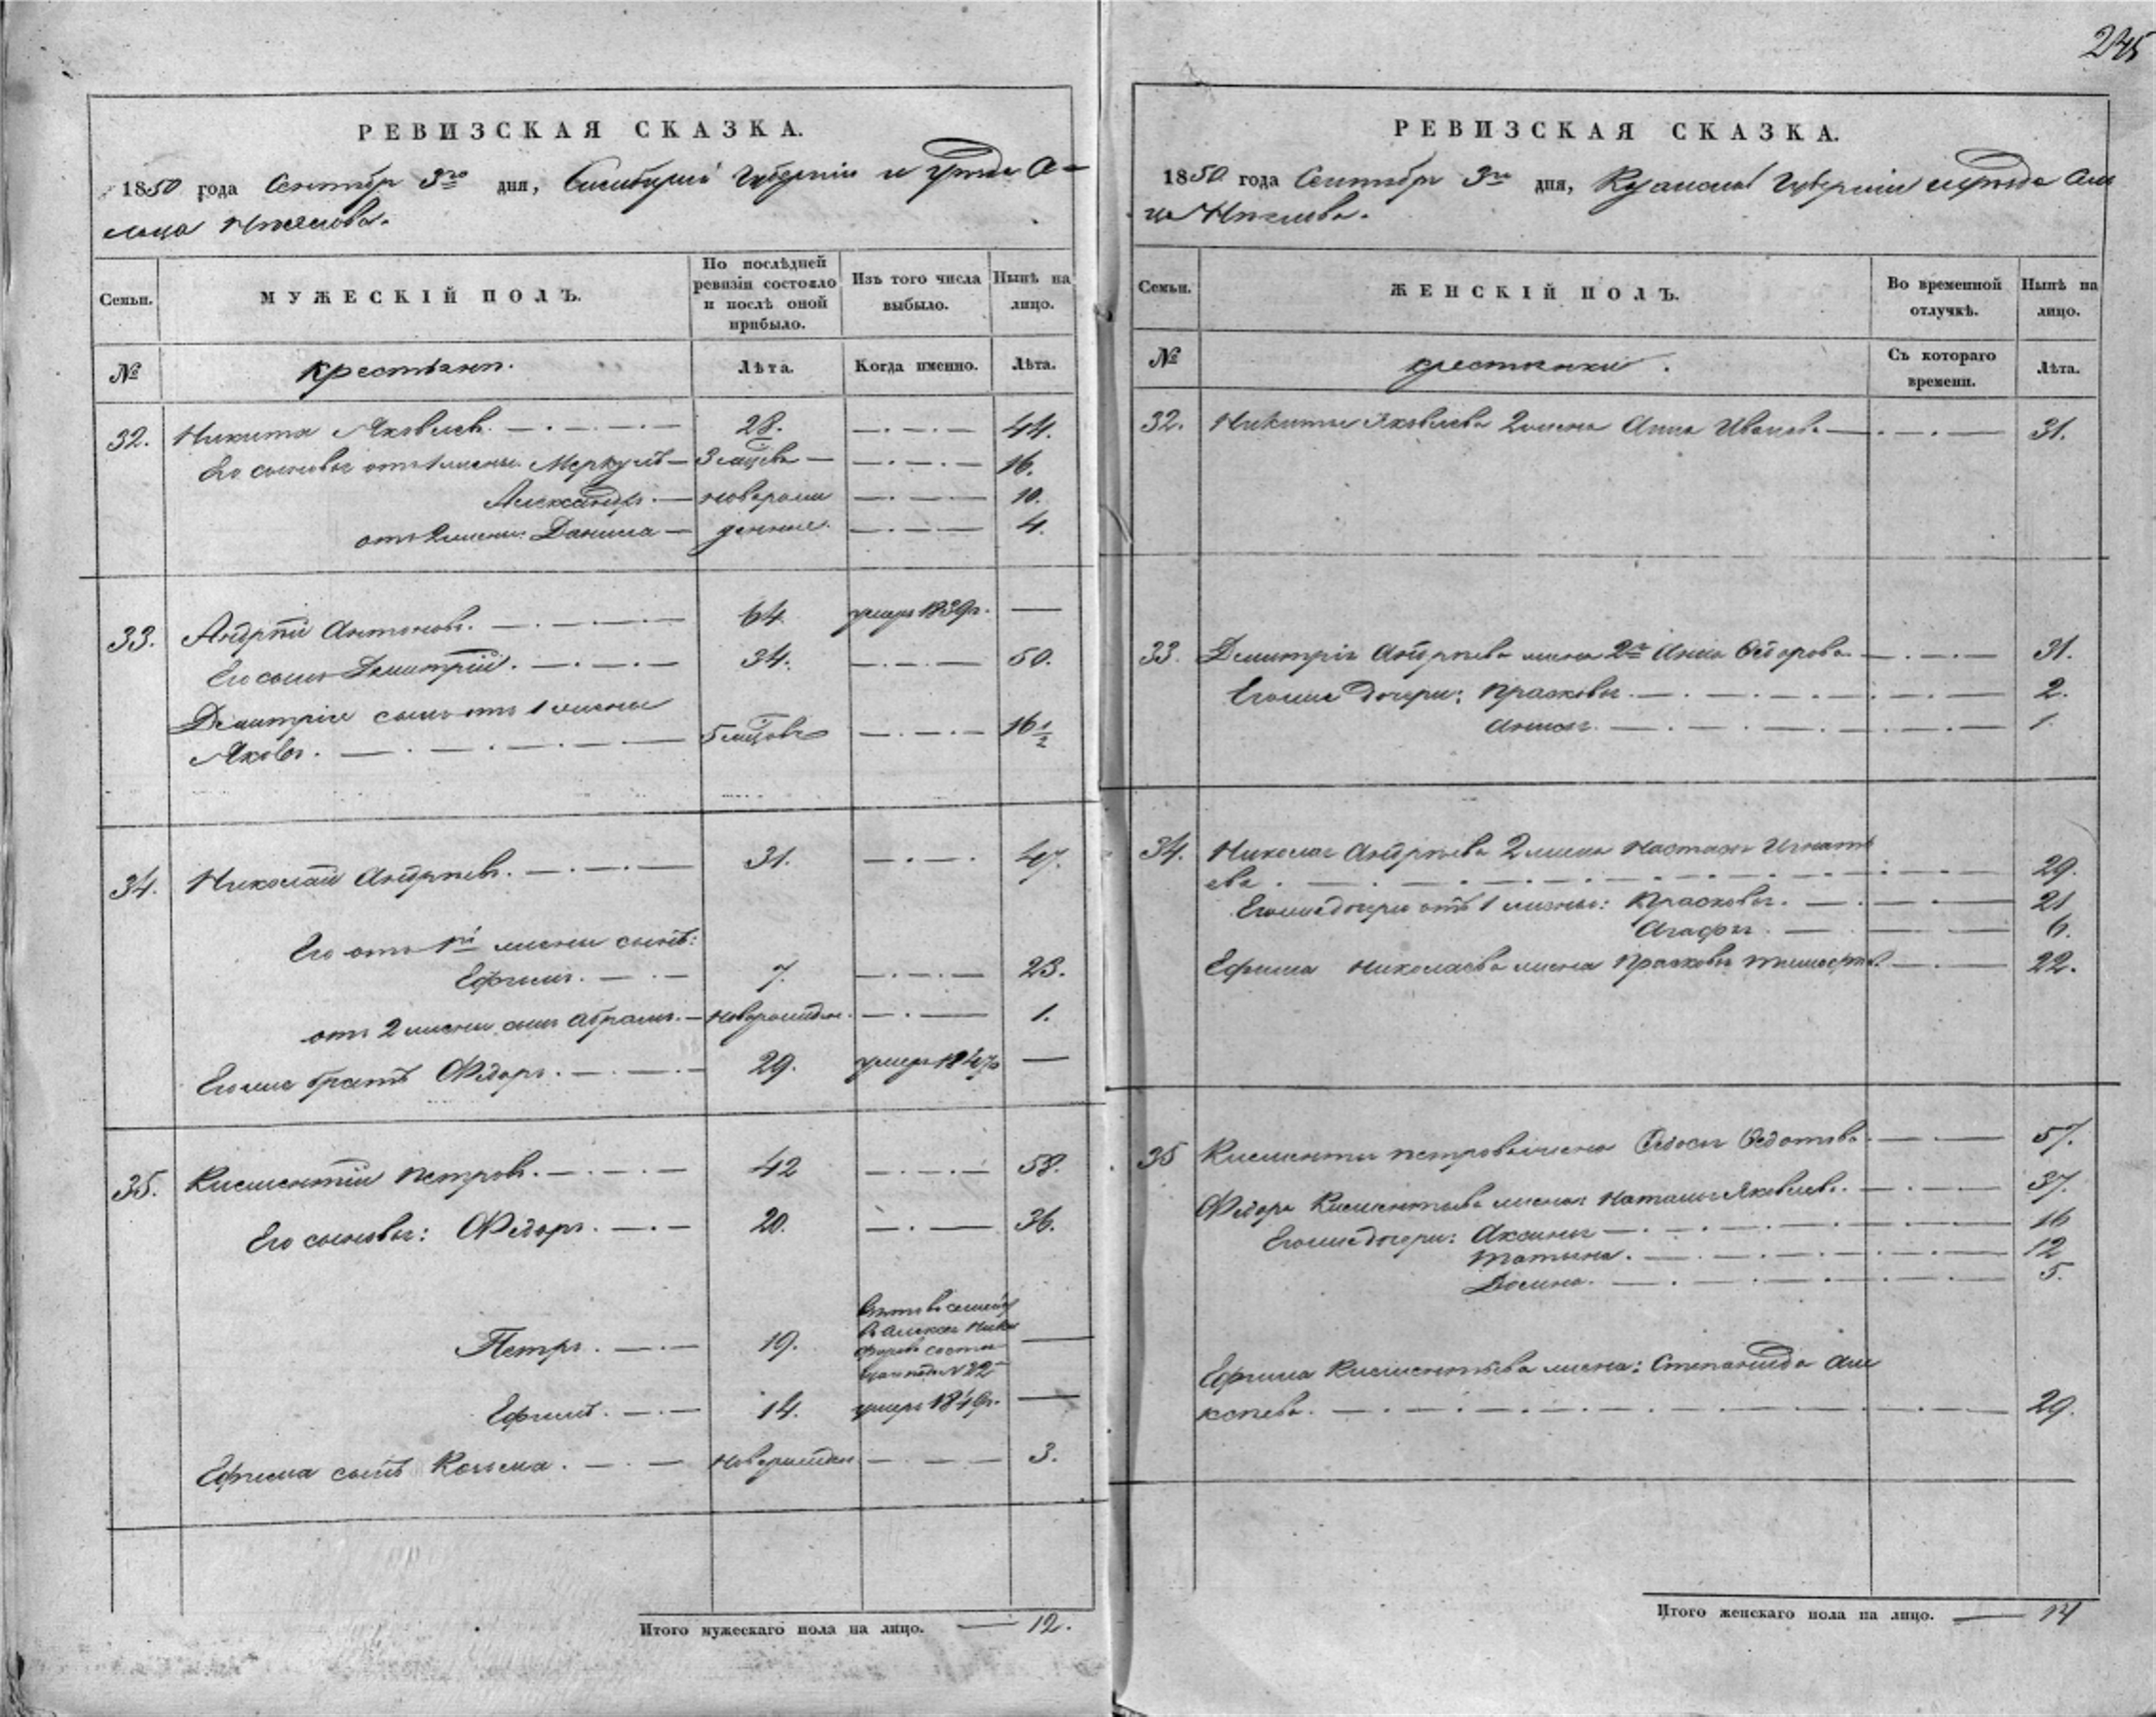 245
РЕВИЗСКАЯ СКАЗКА.
1850 года Сентября 3го дня, Губерніи и уѣзда
МУЖЕСКІЙ ПОЛЪ.
Семьи.
По послѣдней ревизіи состояло и послѣ оной прибыло.
Изъ того числа выбыло.
Нынѣ на лицо.
№ крестьяне. Лѣта. Когда именно. Лѣта.
32. Никита Яковлевъ. 28. 44.
Его сыновья отъ 1 жены Меркулъ 3 мѣсяца 16.
Александръ новорож 10.
отъ 2 жены Данила денные 4.
33. Андрѣй Антоновъ. 64. умеръ 1839г.
Его сынъ Дмитрій. 34. 50.
Дмитрія сынъ отъ 1 жены
Яковъ. 5 мѣсяцовъ 16 1/2
34. Николай Андрѣевъ. 31. 47.
Его отъ 1й жены сынъ:
Ефимъ. 7. 23.
отъ 2 жены сынъ Абрамъ. новорожден. 1.
Егоже братъ Ѳедоръ. 29. умеръ 1847г
35. Климентій Петровъ. 42 58.
Его сыновья: Ѳедоръ. 20. 36.
Петръ. 19.
№ 22
Ефимъ. 14. умеръ 1849г.
Ефима сынъ Козьма. новорожден 3.
Итого мужескаго пола на лицо. 12.
РЕВИЗСКАЯ СКАЗКА.
1850 года Сентября 3го дня, Губерніи уѣзда
Семьи.
ЖЕНСКІЙ ПОЛЪ.
Во временной отлучкѣ.
Нынѣ на лицо.
№ крестьянки. Съ котораго времени. Лѣта.
32. Никиты Яковлева 2 жена Анна Иванова 31.
33. Дмитрія Андрѣева жена 2я Анна Ѳедорова 31.
Егоже дочери: Прасковья. 2.
Анисья. 1.
34. Николая Андрѣева 2 жена Настасья Игнать
ева. 29.
Егоже дочери отъ 1 жены: Прасковья. 21
Агафья. 6.
Ефима Николаева жена Прасковья Тимофѣева 22.
35 Климентія Петрова жена Ѳедосья Ѳедотова. 57.
Ѳедора Климентьева жена Наталья Яковлева. 37.
Егоже дочери: Аксинья 16
Татьяна. 12
Домна. 5.
Ефима Климентьева жена: Степанида Але
ксѣева. 29.
Итого женскаго пола на лицо. 14